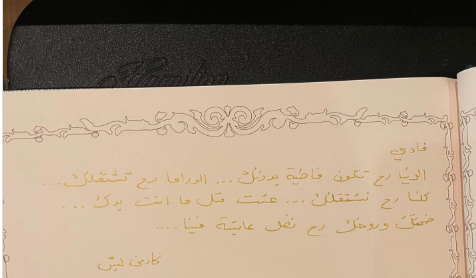 Hamilton
فادي
الدنيا رح تكون فاضية بدونك... الدراما رح تشتقلك...
كلنا رح نشتقلك... عشت متل ما انت بدك...
ضحكتك وروحك رح تضل عايشة فينا....
كارمن لبّس